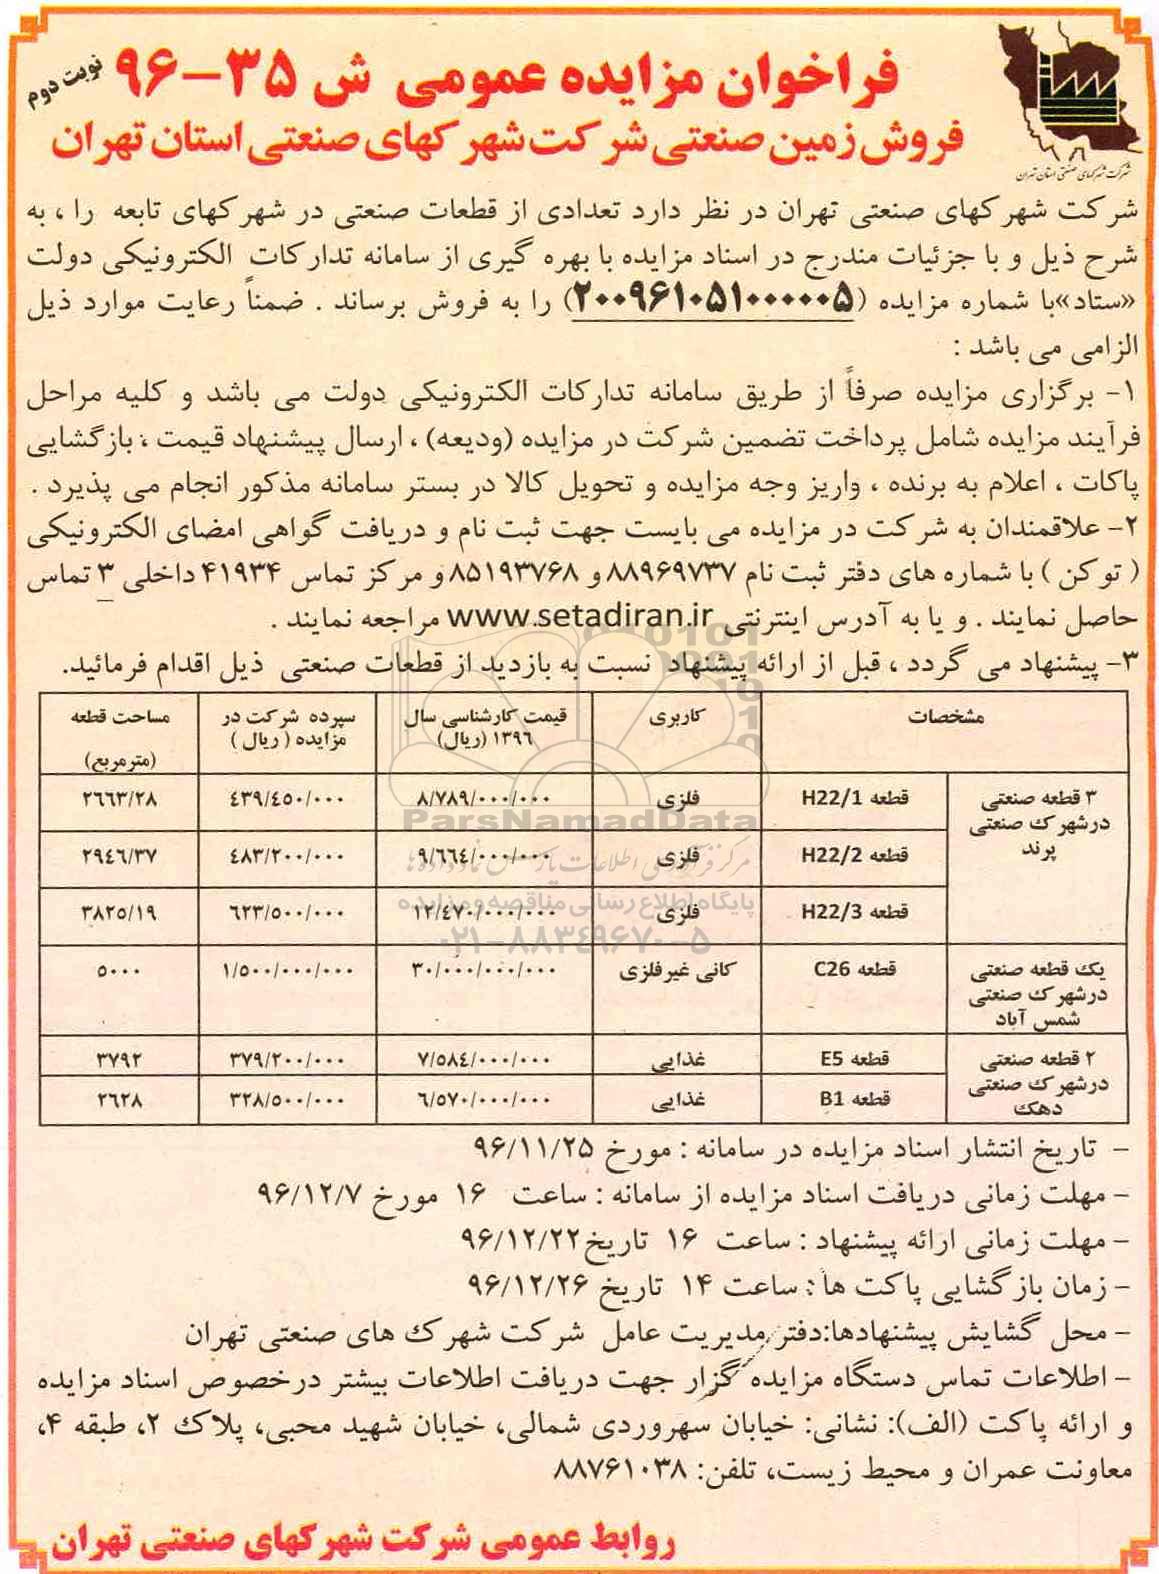 فراخوان مزایده عمومی ش ۳۵-۹۶
نوبت دوم
فروش زمین صنعتی شرکت شهرکهای صنعتی استان تهران
شرکت شهرکهای صنعتی استان تهران
شرکت شهرکهای صنعتی تهران در نظر دارد تعدادی از قطعات صنعتی در شهرکهای تابعه را ، به
شرح ذیل و با جزئیات مندرج در اسناد مزایده با بهره گیری از سامانه تدارکات الکترونیکی دولت
«ستاد»با شماره مزایده (۲۰۰۹۶۱۰۵۱۰۰۰۰۰۵) را به فروش برساند . ضمناً رعایت موارد ذیل
الزامی می باشد :
۱- برگزاری مزایده صرفاً از طریق سامانه تدارکات الکترونیکی دولت می باشد و کلیه مراحل
فرآیند مزایده شامل پرداخت تضمین شرکت در مزایده (ودیعه) ، ارسال پیشنهاد قیمت ، بازگشایی
پاکات ، اعلام به برنده ، واریز وجه مزایده و تحویل کالا در بستر سامانه مذکور انجام می پذیرد .
۲- علاقمندان به شرکت در مزایده می بایست جهت ثبت نام و دریافت گواهی امضای الکترونیکی
( توکن ) با شماره های دفتر ثبت نام ۸۸۹۶۹۷۳۷ و ۸۵۱۹۳۷۶۸ و مرکز تماس ۴۱۹۳۴ داخلی ۳ تماس
حاصل نمایند . و یا به آدرس اینترنتی www.setadiran.ir مراجعه نمایند .
۳- پیشنهاد می گردد ، قبل از ارائه پیشنهاد نسبت به بازدید از قطعات صنعتی ذیل اقدام فرمائید.
مشخصات کاربری قیمت کارشناسی سال ۱۳۹۶ (ریال) سپرده شرکت در مزایده ( ریال ) مساحت قطعه (مترمربع)
۳ قطعه صنعتی درشهرک صنعتی پرند
قطعه H22/1 فلزی ۸/۷۸۹/۰۰۰/۰۰۰ ۴۳۹/۴۵۰/۰۰۰ ۲۶۶۳/۲۸
قطعه H22/2 فلزی ۹/۶۶۴/۰۰۰/۰۰۰ ۴۸۳/۲۰۰/۰۰۰ ۲۹۴۶/۳۷
قطعه H22/3 فلزی ۱۲/۴۷۰/۰۰۰/۰۰۰ ۶۲۳/۵۰۰/۰۰۰ ۳۸۲۵/۱۹
یک قطعه صنعتی درشهرک صنعتی شمس آباد
قطعه C26 کانی غیرفلزی ۳۰/۰۰۰/۰۰۰/۰۰۰ ۱/۵۰۰/۰۰۰/۰۰۰ ۵۰۰۰
۲ قطعه صنعتی درشهرک صنعتی دهک
قطعه E5 غذایی ۷/۵۸۴/۰۰۰/۰۰۰ ۳۷۹/۲۰۰/۰۰۰ ۳۷۹۲
قطعه B1 غذایی ۶/۵۷۰/۰۰۰/۰۰۰ ۳۲۸/۵۰۰/۰۰۰ ۲۶۲۸
ParsNamadData
مرکز فرآوری اطلاعات پارس نماد داده‌ها
پایگاه اطلاع رسانی مناقصه و مزایده
۰۲۱-۸۸۳۴۹۶۷۰-۵
- تاریخ انتشار اسناد مزایده در سامانه : مورخ ۹۶/۱۱/۲۵
- مهلت زمانی دریافت اسناد مزایده از سامانه : ساعت ۱۶ مورخ ۹۶/۱۲/۷
- مهلت زمانی ارائه پیشنهاد : ساعت ۱۶ تاریخ ۹۶/۱۲/۲۲
- زمان بازگشایی پاکت ها : ساعت ۱۴ تاریخ ۹۶/۱۲/۲۶
- محل گشایش پیشنهادها:دفتر مدیریت عامل شرکت شهرک های صنعتی تهران
- اطلاعات تماس دستگاه مزایده گزار جهت دریافت اطلاعات بیشتر درخصوص اسناد مزایده
و ارائه پاکت (الف): نشانی: خیابان سهروردی شمالی، خیابان شهید محبی، پلاک ۲، طبقه ۴،
معاونت عمران و محیط زیست، تلفن: ۸۸۷۶۱۰۳۸
روابط عمومی شرکت شهرکهای صنعتی تهران